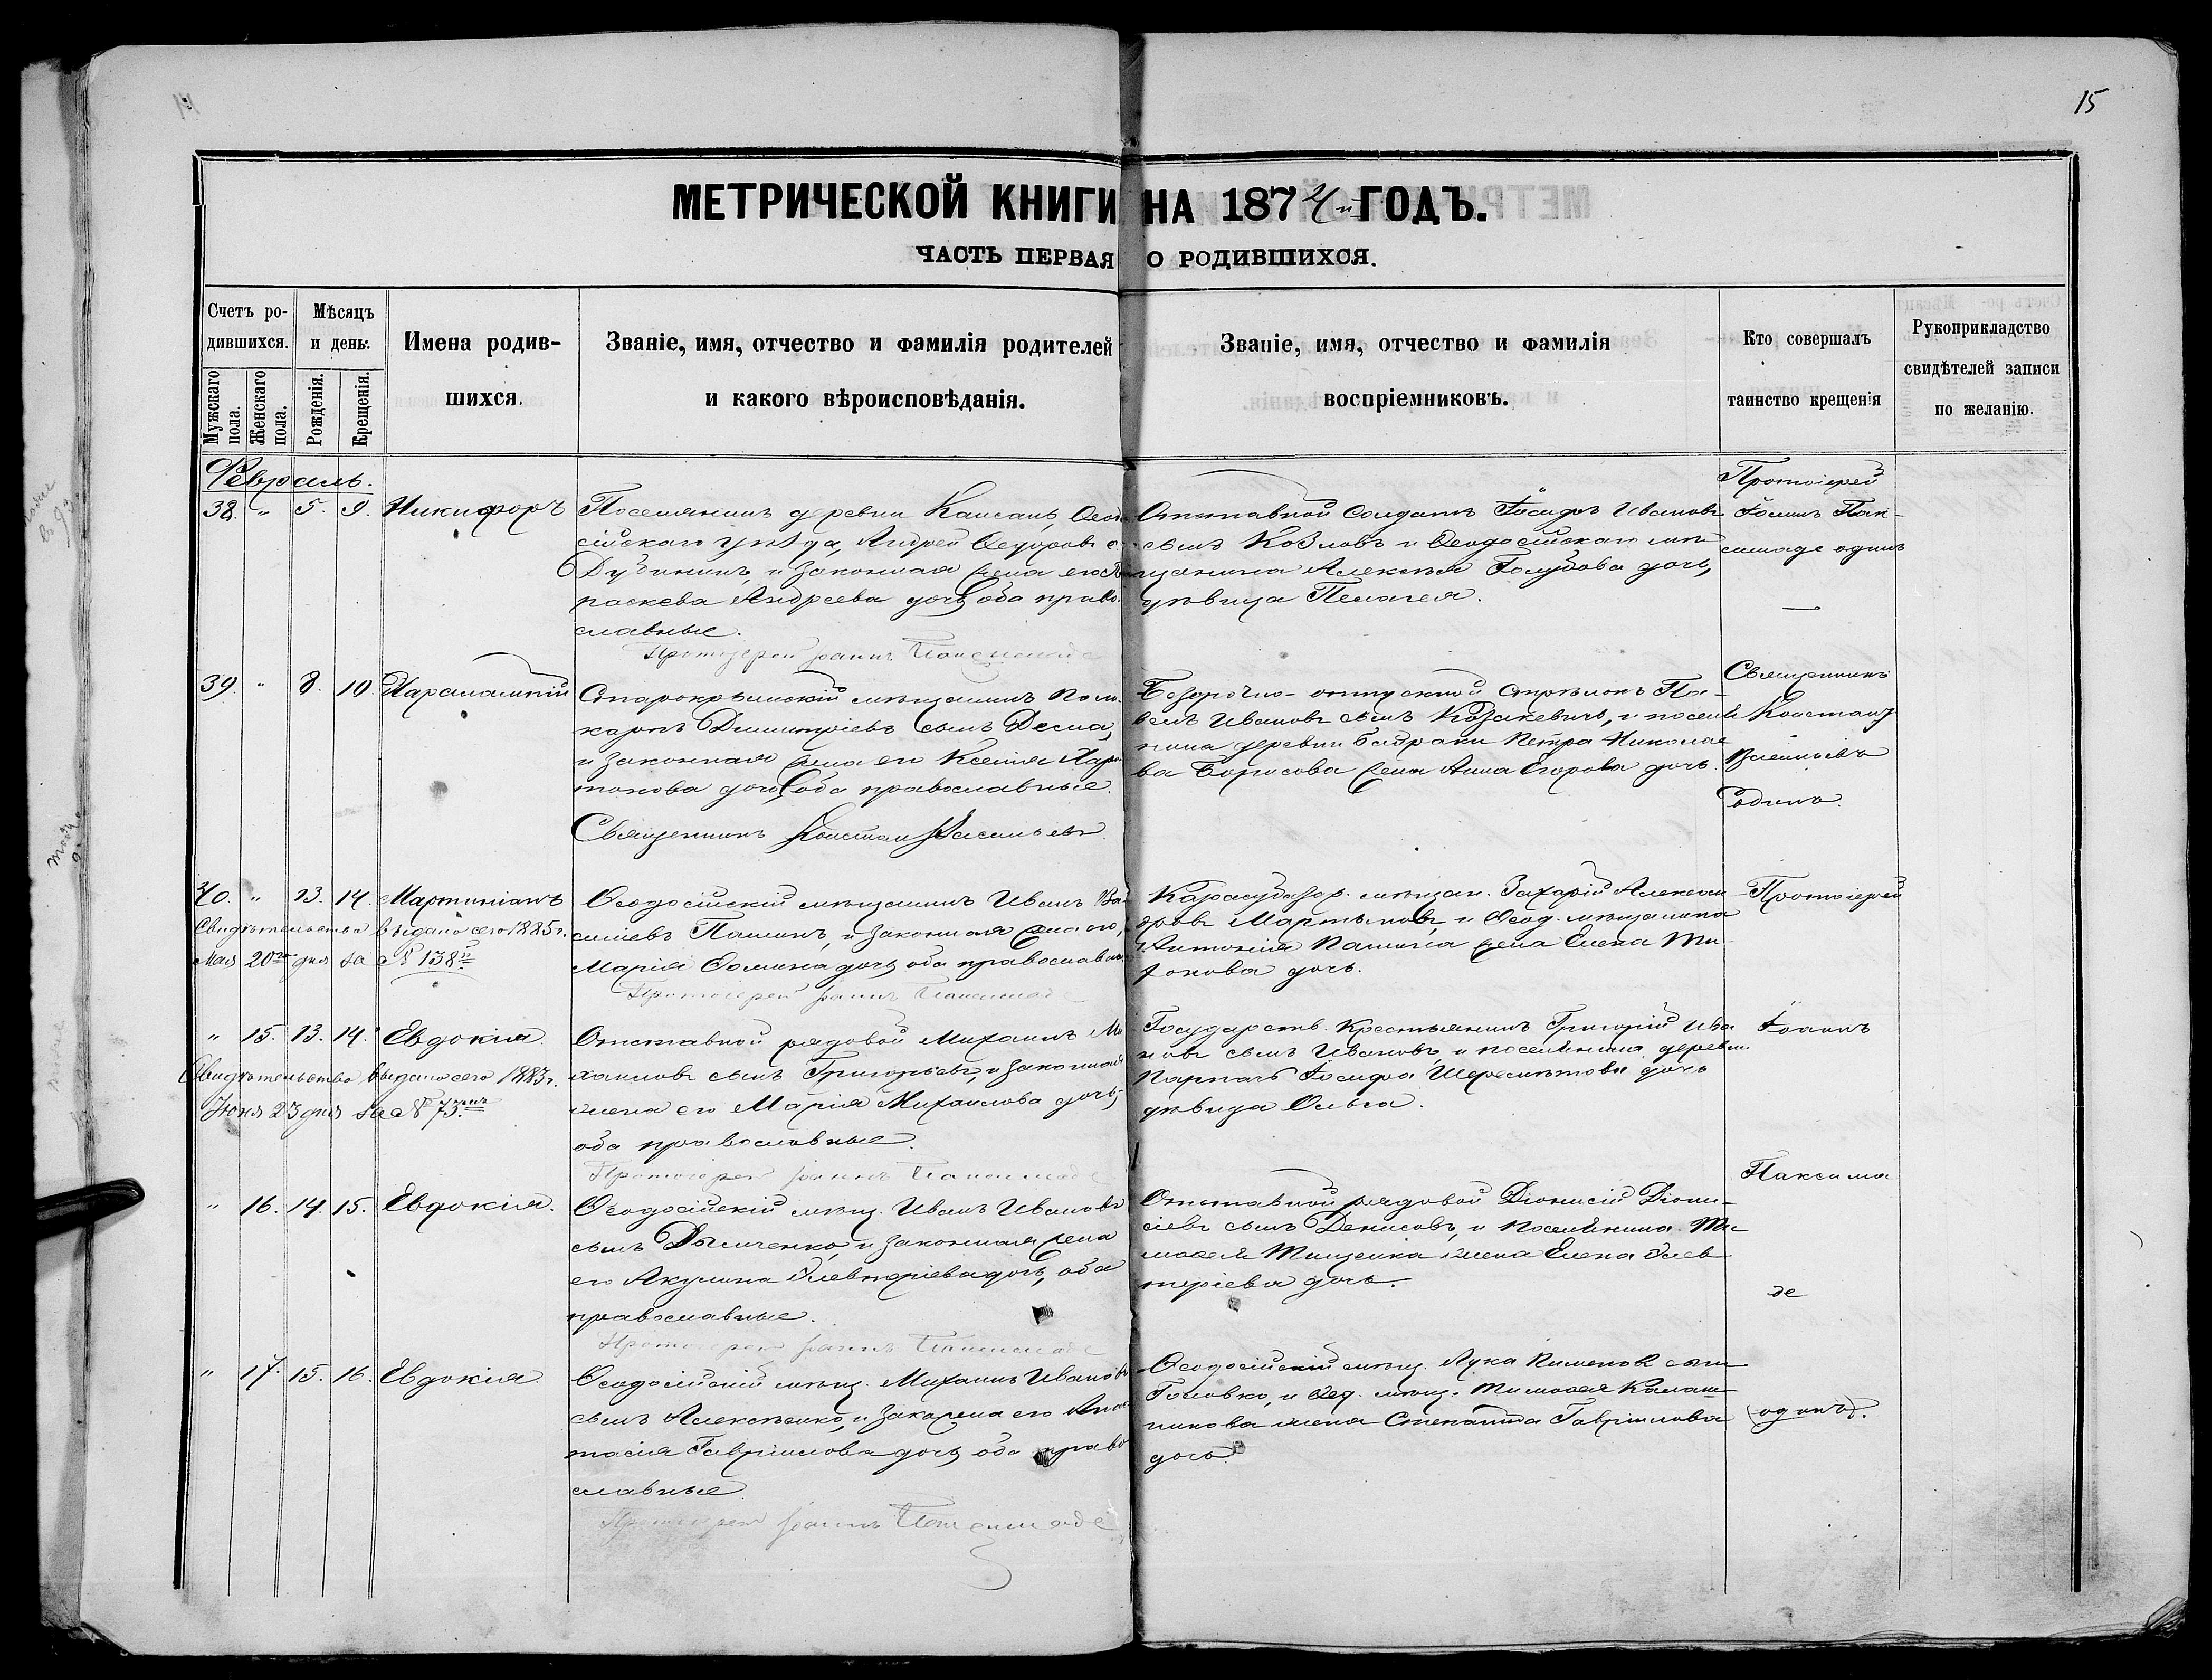 15
МЕТРИЧЕСКОЙ КНИГИ НА 1874й ГОДЪ.
ЧАСТЬ ПЕРВАЯ О РОДИВШИХСЯ.
Счетъ родившихся.
Мужскаго пола.
Женскаго пола.
Мѣсяцъ и день.
Рожденія.
Крещенія.
Имена родив-
шихся.
Званіе, имя, отчество и фамилія родителей
и какого вѣроисповѣданія.
Званіе, имя, отчество и фамилія
воспріемниковъ.
Кто совершалъ
таинство крещенія
Рукоприкладство
свидѣтелей записи
по желанію.
Февраль.
38. " 5. 9. Никифоръ
Поселянинъ деревни Ѳеодо
сійскаго уѣзда, Андрей Ѳедоровъ с.
Дубининъ, и законная жена его Па
раскева Андреева дочь, оба право
славные.
Протоіерей Іоаннъ Паксимаде
Отставной солдатъ Іосифъ Ивановъ
сынъ Козловъ и Ѳеодосійскаго мѣ
щанина Алексѣя Голубова дочь,
дѣвица Пелагея.
Протоіерей
Іоаннъ Пак-
симаде одинъ
39. " 8. 10. Харалампій
Старокрымскій мѣщанинъ Поли
карпъ Димитріевъ сынъ Десма,
и законная жена его Ксенія Хари
тонова дочь, оба православные.
Священникъ Констан Васильевъ
Безсрочно-отпускной стрѣлокъ Па-
велъ Ивановъ сынъ Козакевичъ, и поселя
нина деревни Байраки Петра Николае
ва Борисова жена Анна Егорова дочь.
Священникъ
Констант
Васильевъ
одинъ.
40. " 13. 14. Мартиніанъ
Свидѣтельство выдано сего 1885 г.
Мая 20го дня за № 138й
Ѳеодосійскій мѣщанинъ Иванъ Ва
силіевъ Пашинъ, и законная жена его,
Марія Ѳомина дочь, оба православн.
Протоіерей Іоаннъ Паксимаде
Карасубазар. мѣщан. Захарій Алексан
дровъ Мартыновъ, и Ѳеод. мѣщанина
Антонія Пашина жена Елена Ти
хонова дочь.
Протоіерей
" 15. 13. 14. Евдокія
Свидѣтельство выдано сего 1883 г.
Іюня 23 дня за № 73.
Отставной рядовой Михаилъ Ми
хаиловъ сынъ Григорьевъ, и законная
жена его Марія Михаилова дочь,
оба православные.
Протоіерей Іоаннъ Паксимаде
Государств. крестьянинъ Григорій Ива
новъ сынъ Ивановъ, и поселянина деревни
Парпачъ Іосифа Шереметова дочь
дѣвица Ольга.
Іоаннъ
" 16. 14. 15. Евдокія.
Ѳеодосійскій мѣщ. Иванъ Ивановъ
сынъ Дымченко, и законная жена
его Акулина Элевтеріева дочь, оба
православные.
Протоіерей Іоаннъ Паксимаде
Отставной рядовой Діонисій Діони-
сіевъ сынъ Денисовъ, и поселянина Ти
мофея Тищенка жена Елена Элев
теріева дочь.
Паксима
де
" 17. 15. 16. Евдокія
Ѳеодосійскій мѣщ. Михаилъ Ивановъ
сынъ Алексѣенко, и зак. жена его Анас
тасія Гавріилова дочь, оба право
славные.
Протоіерей Іоаннъ Паксимаде
Ѳеодосійскій мѣщ. Лука Пименовъ сын
Головко, и Ѳед. мѣщ. Тимофея Калаш
никова жена Степанида Гавріилова
дочь.
одинъ.